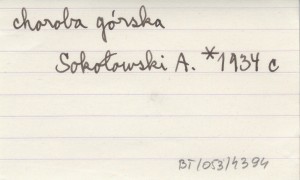 choroba górska
Sokołowski A. *1934 c
BT/053/4394